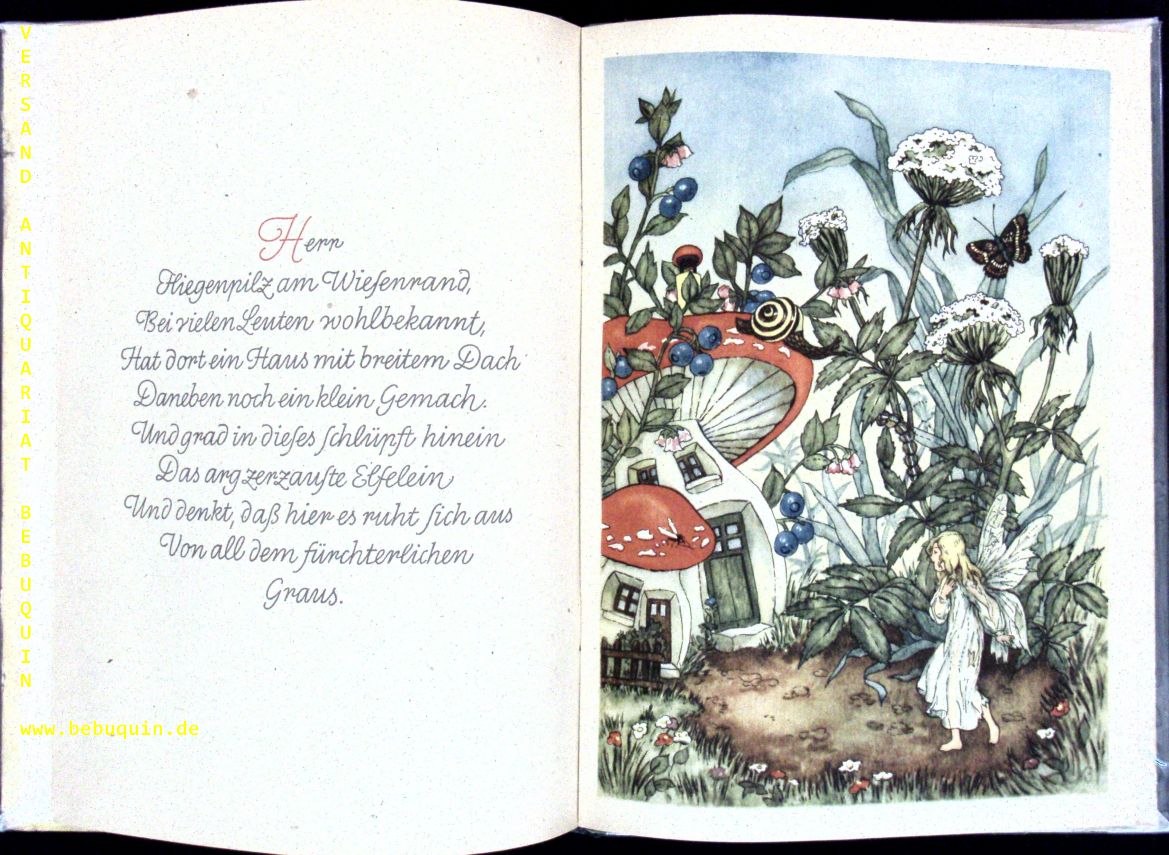 Herr
Fliegenpilz am Wiesenrand,
Bei vielen Leuten wohlbekannt,
Hat dort ein Haus mit breitem Dach
Daneben noch ein klein Gemach.
Und grad in dieſes ſchlüpft hinein
Das arg zerzauſte Elfelein
Und denkt, daß hier es ruht ſich aus
Von all dem fürchterlichen
Graus.
VERSAND ANTIQUARIAT BEBUQUIN
www.bebuquin.de